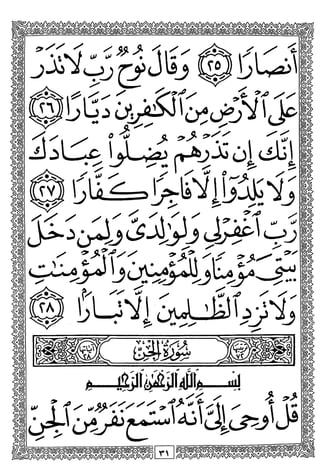 أَنصَارًا ٢٥ وَقَالَ نُوحٌ رَّبِّ لَا تَذَرْ
عَلَى ٱلْأَرْضِ مِنَ ٱلْكَٰفِرِينَ دَيَّارًا ٢٦
إِنَّكَ إِن تَذَرْهُمْ يُضِلُّوا۟ عِبَادَكَ
وَلَا يَلِدُوٓا۟ إِلَّا فَاجِرًا كَفَّارًا ٢٧
رَّبِّ ٱغْفِرْ لِى وَلِوَٰلِدَىَّ وَلِمَن دَخَلَ
بَيْتِىَ مُؤْمِنًا وَلِلْمُؤْمِنِينَ وَٱلْمُؤْمِنَٰتِ
وَلَا تَزِدِ ٱلظَّٰلِمِينَ إِلَّا تَبَارًۢا ٢٨
سُورَةُ الْجِنِّ
بِسْمِ ٱللَّهِ ٱلرَّحْمَٰنِ ٱلرَّحِيمِ
قُلْ أُوحِىَ إِلَىَّ أَنَّهُ ٱسْتَمَعَ نَفَرٌ مِّنَ ٱلْجِنِّ
٣١